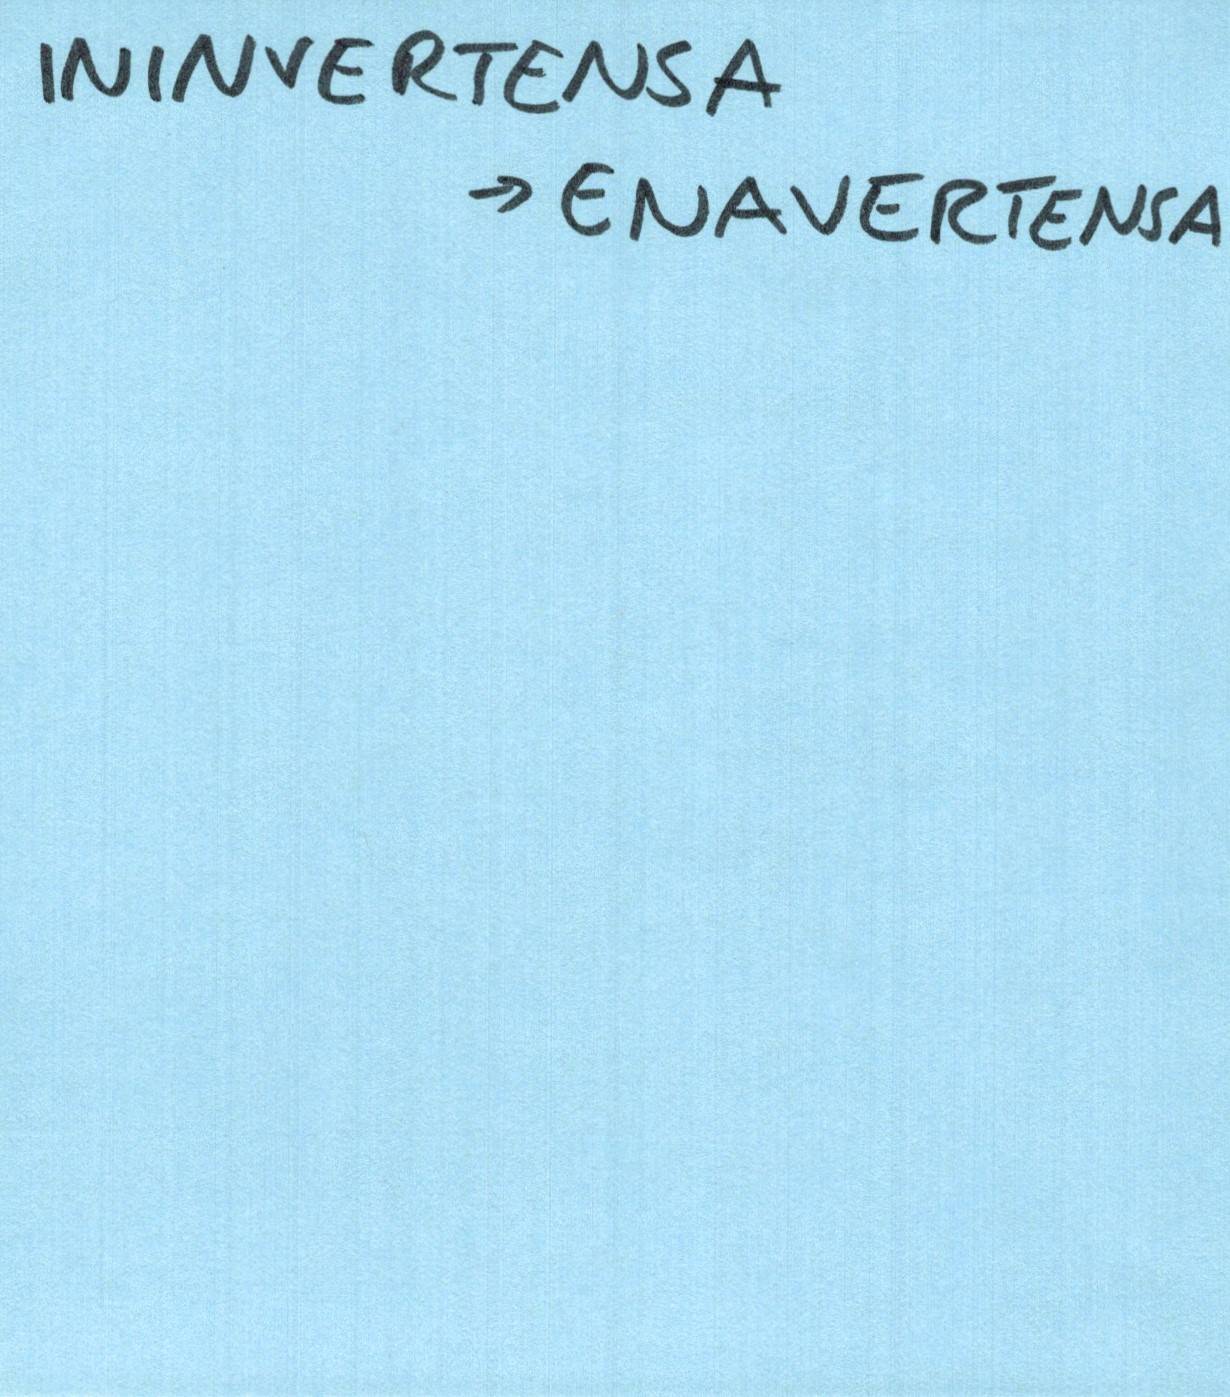 ININVERTENSA
→ ENAVERTENSA